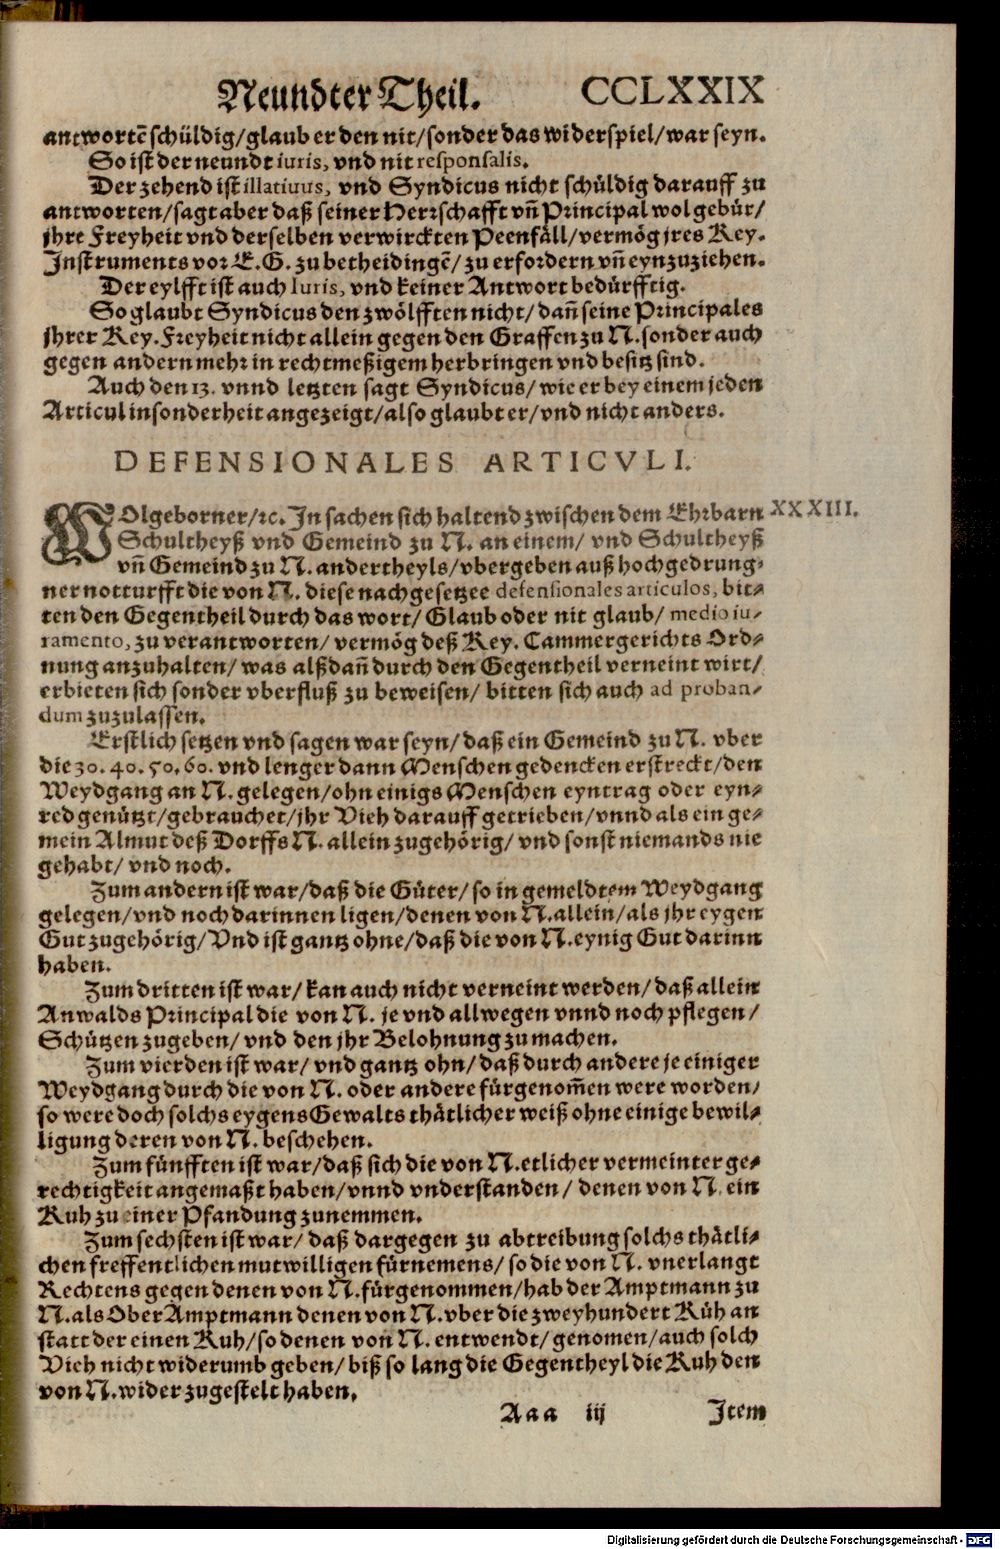 Neundter Theil. CCLXXIX
antwortẽ schüldig/glaub er den nit/sonder das widerspiel/war seyn.
So ist der neundt iuris, vnd nit responsalis.
Der zehend ist illatiuus, vnd Syndicus nicht schüldig darauff zu
antworten/sagt aber daß seiner Herrschafft vñ Principal wol gebür/
jhre Freyheit vnd derselben verwirckten Peenfäll/vermög jres Key.
Instruments vor E.G. zu betheidingẽ/zu erfordern vñ eynzuziehen.
Der eylfft ist auch Iuris, vnd keiner Antwort bedürfftig.
So glaubt Syndicus den zwölfften nicht/dañ seine Principales
jhrer Key. Freyheit nicht allein gegen den Graffen zu N. sonder auch
gegen andern mehr in rechtmeßigem herbringen vnd besitz sind.
Auch den 13. vnnd letzten sagt Syndicus/wie er bey einem jeden
Articul insonderheit angezeigt/also glaubt er/vnd nicht anders.
DEFENSIONALES ARTICVLI.
WOlgeborner/ꝛc. In sachen sich haltend zwischen dem Ehrbarn XXXIII.
Schultheyß vnd Gemeind zu N. an einem/ vnd Schultheyß
vñ Gemeind zu N. andertheyls/vbergeben auß hochgedrung-
ner notturfft die von N. diese nachgesetzee defensionales articulos, bit-
ten den Gegentheil durch das wort/ Glaub oder nit glaub/ medio iu-
ramento, zu verantworten/ vermög deß Key. Cammergerichts Ord-
nung anzuhalten/ was alßdañ durch den Gegentheil verneint wirt/
erbieten sich sonder vberfluß zu beweisen/ bitten sich auch ad proban-
dum zuzulassen.
Erstlich setzen vnd sagen war seyn/ daß ein Gemeind zu N. vber
die 30. 40. 50. 60. vnd lenger dann Menschen gedencken erstreckt/den
Weydgang an N. gelegen/ohn einigs Menschen eyntrag oder eyn-
red genützt/gebrauchet/jhr Vieh darauff getrieben/vnnd als ein ge-
mein Almut deß Dorffs N. allein zugehörig/ vnd sonst niemands nie
gehabt/ vnd noch.
Zum andern ist war/daß die Güter/ so in gemeldtem Weydgang
gelegen/vnd noch darinnen ligen/denen von N. allein/als jhr eygen
Gut zugehörig/Vnd ist gantz ohne/daß die von N. eynig Gut darinn
haben.
Zum dritten ist war/ kan auch nicht verneint werden/ daß allein
Anwalds Principal die von N. je vnd allwegen vnnd noch pflegen/
Schützen zugeben/ vnd den jhr Belohnung zu machen.
Zum vierden ist war/ vnd gantz ohn/ daß durch andere je einiger
Weydgang durch die von N. oder andere fürgenom̃en were worden/
so were doch solchs eygens Gewalts thätlicher weiß ohne einige bewil-
ligung deren von N. beschehen.
Zum fünfften ist war/daß sich die von N. etlicher vermeinter ge-
rechtigkeit angemaßt haben/vnnd vnderstanden/ denen von N. ein
Kuh zu einer Pfandung zunemmen.
Zum sechsten ist war/ daß dargegen zu abtreibung solchs thätli-
chen freffentlichen mutwilligen fürnemens/ so die von N. vnerlangt
Rechtens gegen denen von N. fürgenommen/hab der Amptmann zu
N. als Ober Amptmann denen von N. vber die zweyhundert Küh an
statt der einen Kuh/so denen von N. entwendt/ genomen/auch solch
Vieh nicht widerumb geben/ biß so lang die Gegentheyl die Kuh den
von N. wider zugestelt haben.
Aaa iij Item
Digitalisierung gefördert durch die Deutsche Forschungsgemeinschaft - DFG